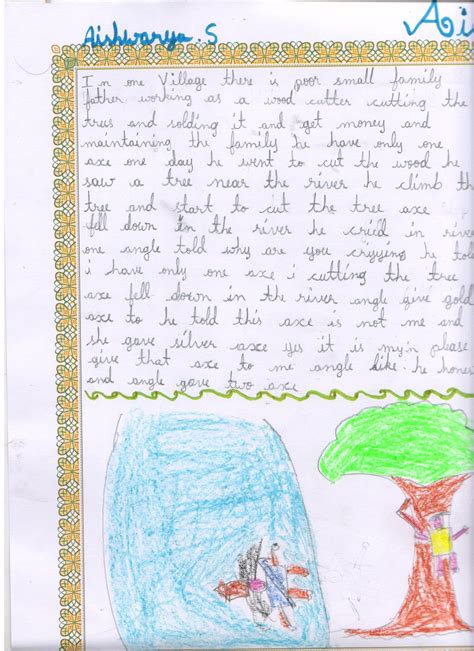 Aishwarya.S
Ai
In one Village there is poor small family
father working as a wood cutter cutting the
trus and solding it and get money and
maintaining the family he have only one
axe one day he went to cut the wood he
saw a tree near the river he climb th
tree and start to cut the tree axe
fell down in the river he cried in river
one angle told why are you criysing he tol
i have only one axe i cutting the tree
axe fell down in the river angle give gold
axe to he told this axe is not me and
she gave silver axe yes it is myin please
give that axe to me angle like he hones
and angle gave two axe